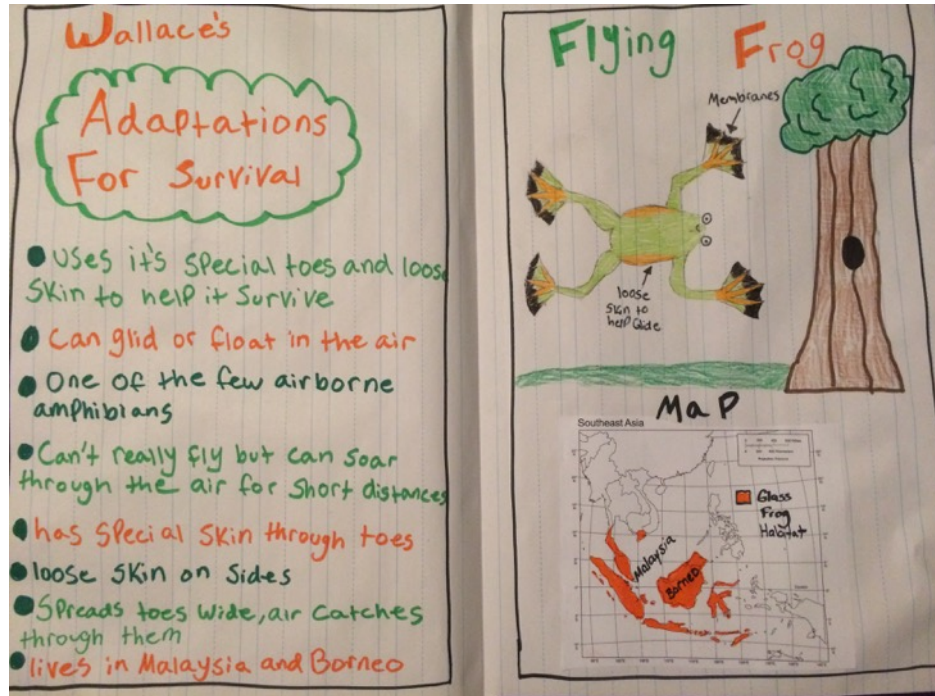 Wallace's
Adaptations
For Survival
Uses it's special toes and loose
skin to help it Survive
Can glid or float in the air
One of the few airborne
amphibians
Can't really fly but can soar
through the air for short distances
has special skin through toes
loose skin on sides
Spreads toes wide, air catches
through them
lives in Malaysia and Borneo
Flying Frog
Membranes
loose
skin to
help Glide
Map
Southeast Asia
Glass
Frog
Habitat
Malaysia
Borneo